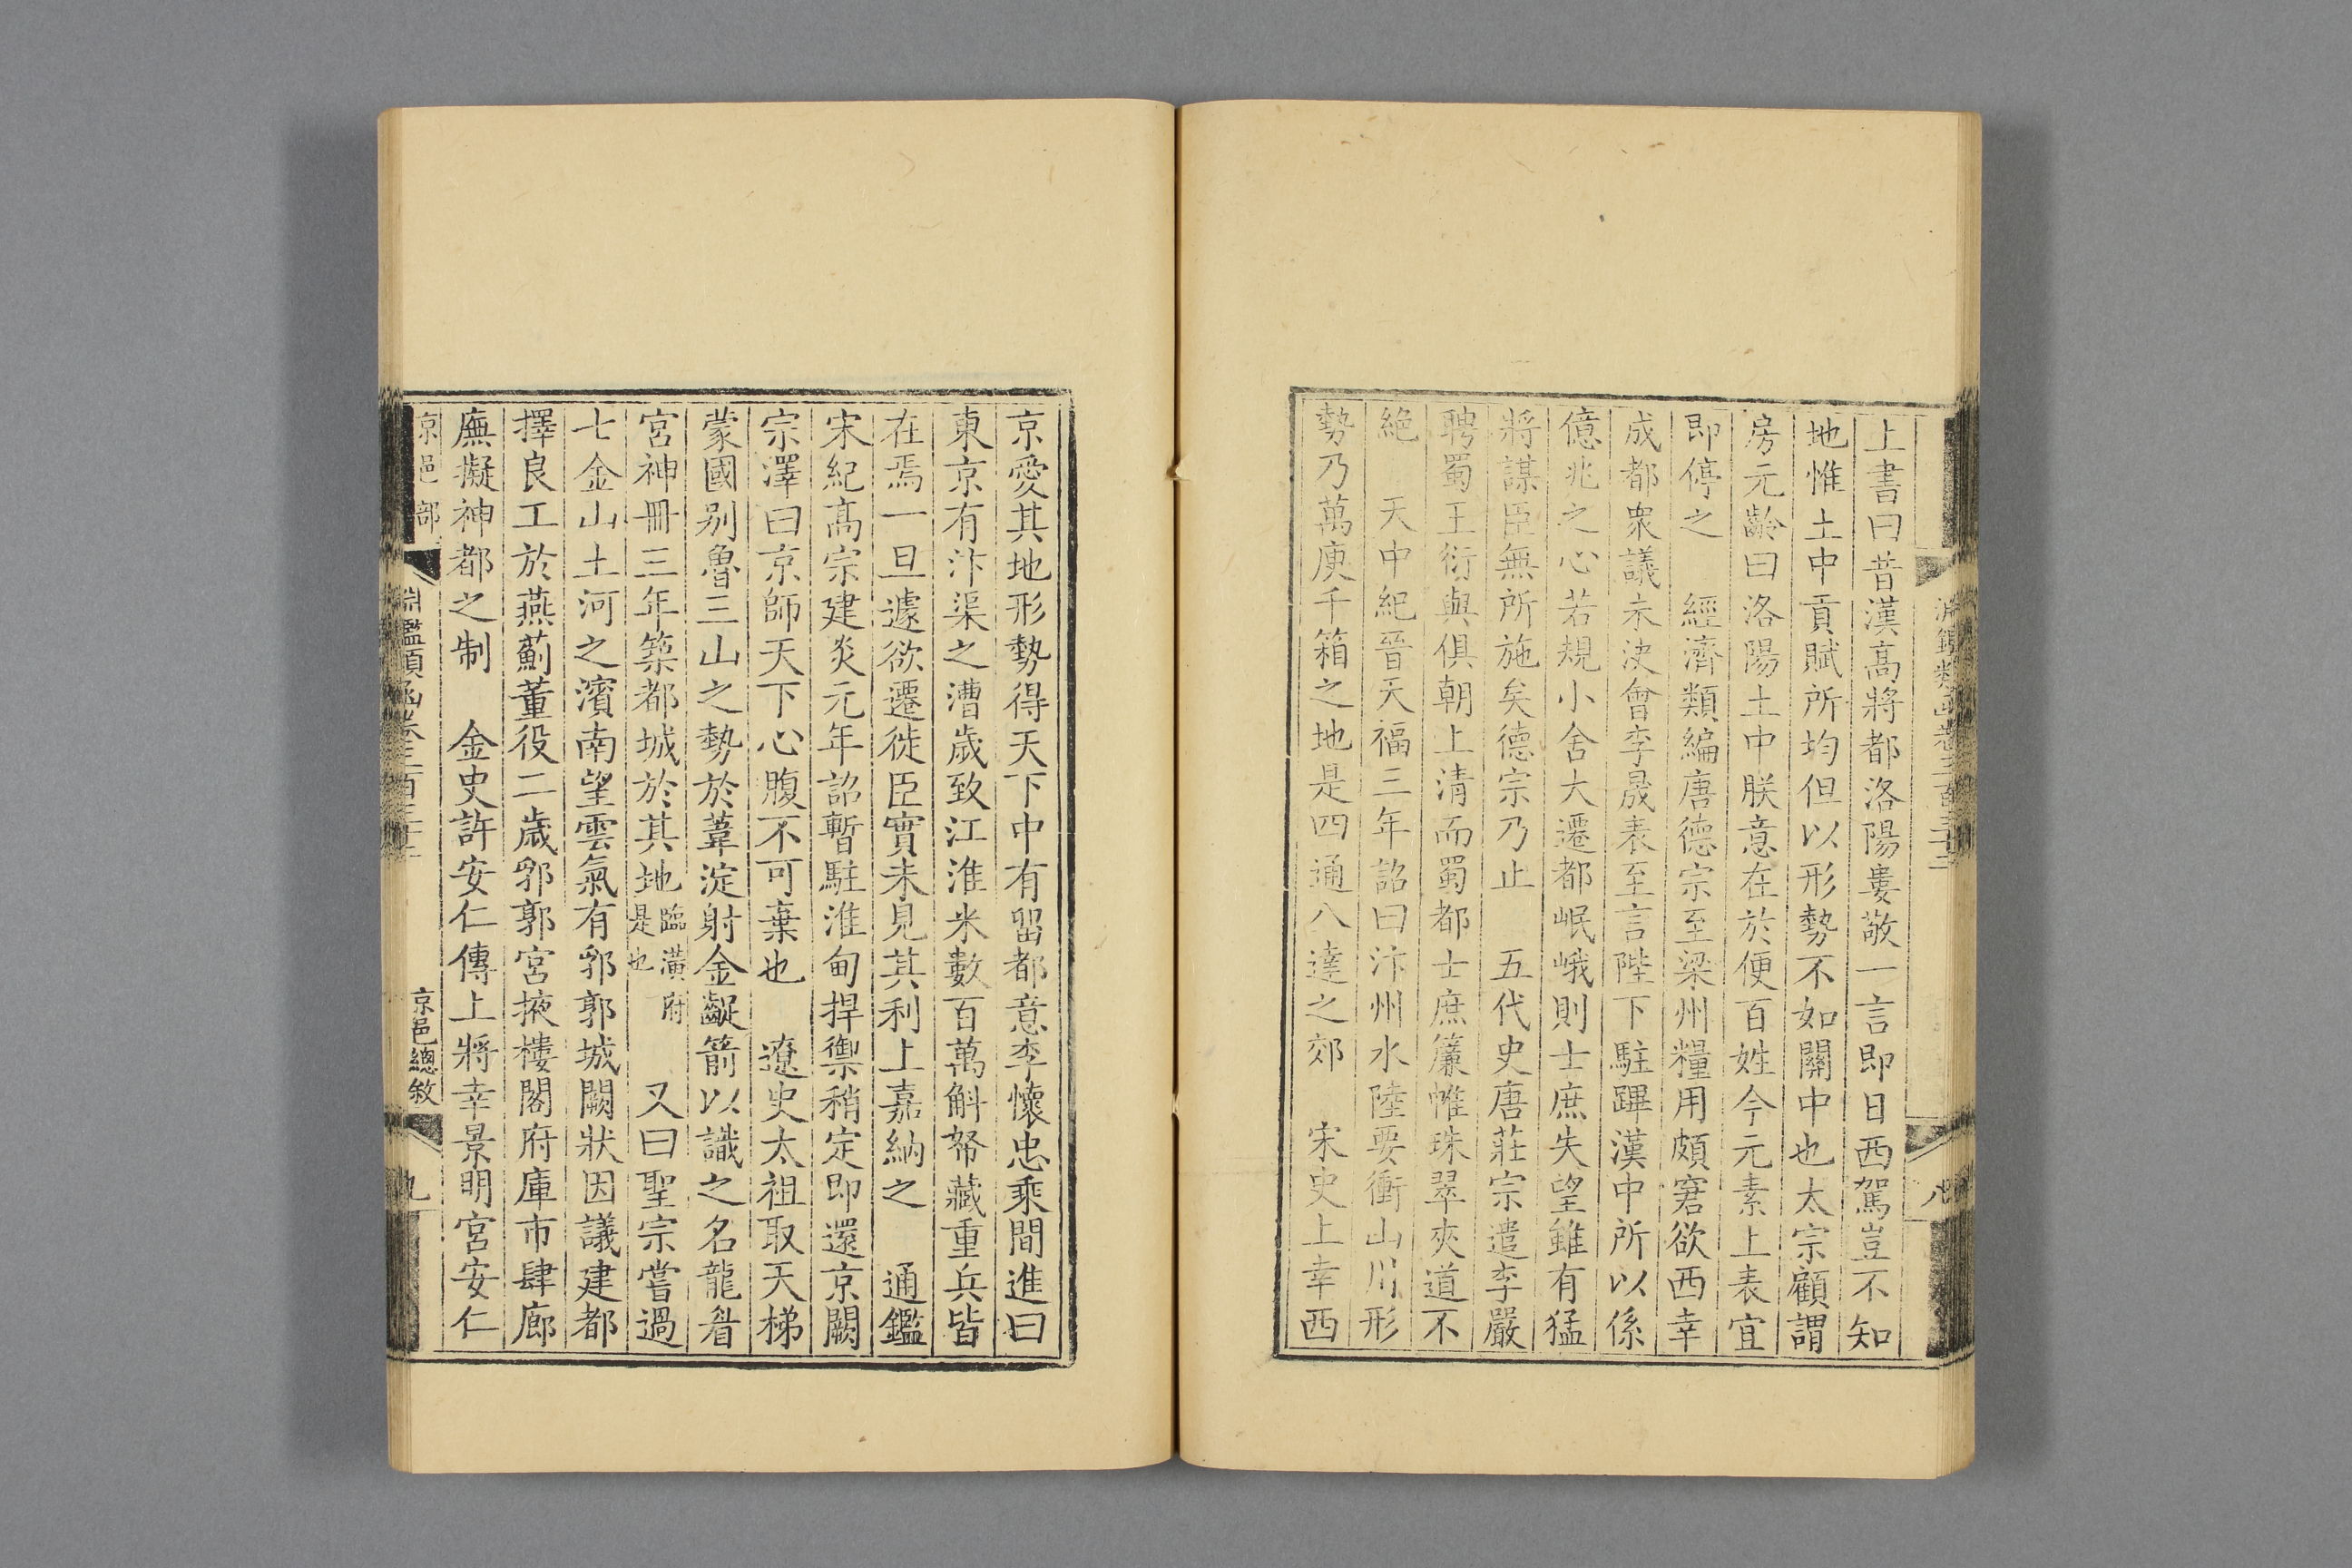 上書曰昔漢高將都洛陽婁敬一言即日西駕豈不知
地惟土中貢賦所均但以形勢不如關中也太宗顧謂
房元齡曰洛陽土中朕意在於便百姓今元素上表宜
即停之　經濟類編唐德宗至梁州糧用頗窘欲西幸
成都衆議未決會李晟表至言陛下駐蹕漢中所以係
億兆之心若規小舍大遷都岷峨則士庶失望雖有猛
將謀臣無所施矣德宗乃止　五代史唐莊宗遣李嚴
聘蜀王衍與俱朝上清而蜀都士庶簾帷珠翠夾道不
絶　天中紀晉天福三年詔曰汴州水陸要衝山川形
勢乃萬庾千箱之地是四通八達之郊　宋史上幸西
京愛其地形勢得天下中有留都意李懷忠乘間進曰
東京有汴渠之漕歲致江淮米數百萬斛帑藏重兵皆
在焉一旦遽欲遷徙臣實未見其利上嘉納之　通鑑
宋紀高宗建炎元年詔暫駐淮甸捍禦稍定即還京闕
宗澤曰京師天下心腹不可棄也　遼史太祖取天梯
蒙國别魯三山之勢於葦淀射金齪箭以識之名龍眉
宮神冊三年築都城於其地臨潢府是也　又曰聖宗嘗過
七金山土河之濱南望雲氣有郛郭城闕狀因議建都
擇良工於燕薊董役二歲郛郭宮掖樓閣府庫市肆廊
廡擬神都之制　金史許安仁傳上將幸景明宮安仁
京邑部　淵鑑類函卷三百三十三　京邑總敘　九